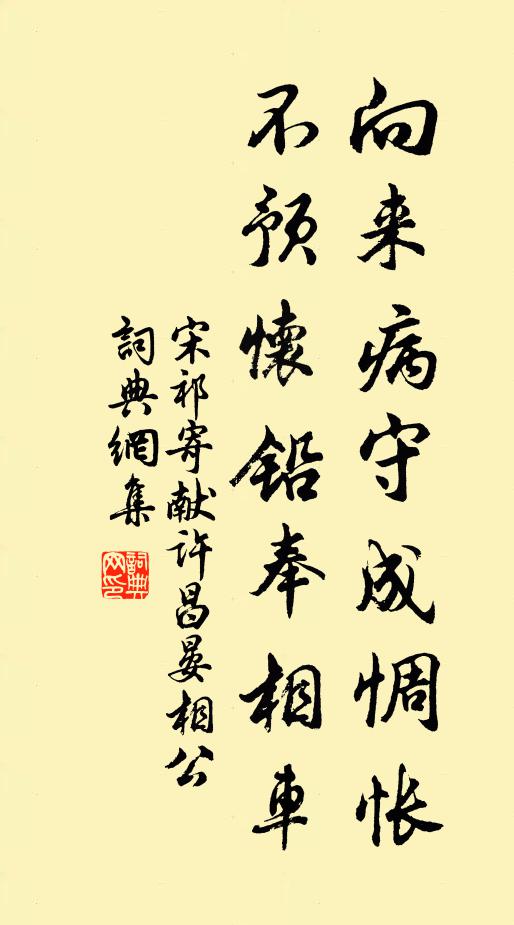 向来病守成惆怅
不预懷鉛奉相車
宋祁寄献许昌晏相公
詞典網集
詞典
网印